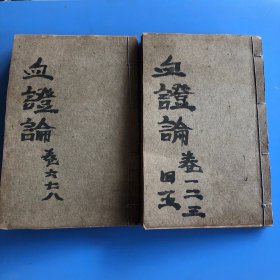 血證論
卷一二三
四五
血證論
卷六七八